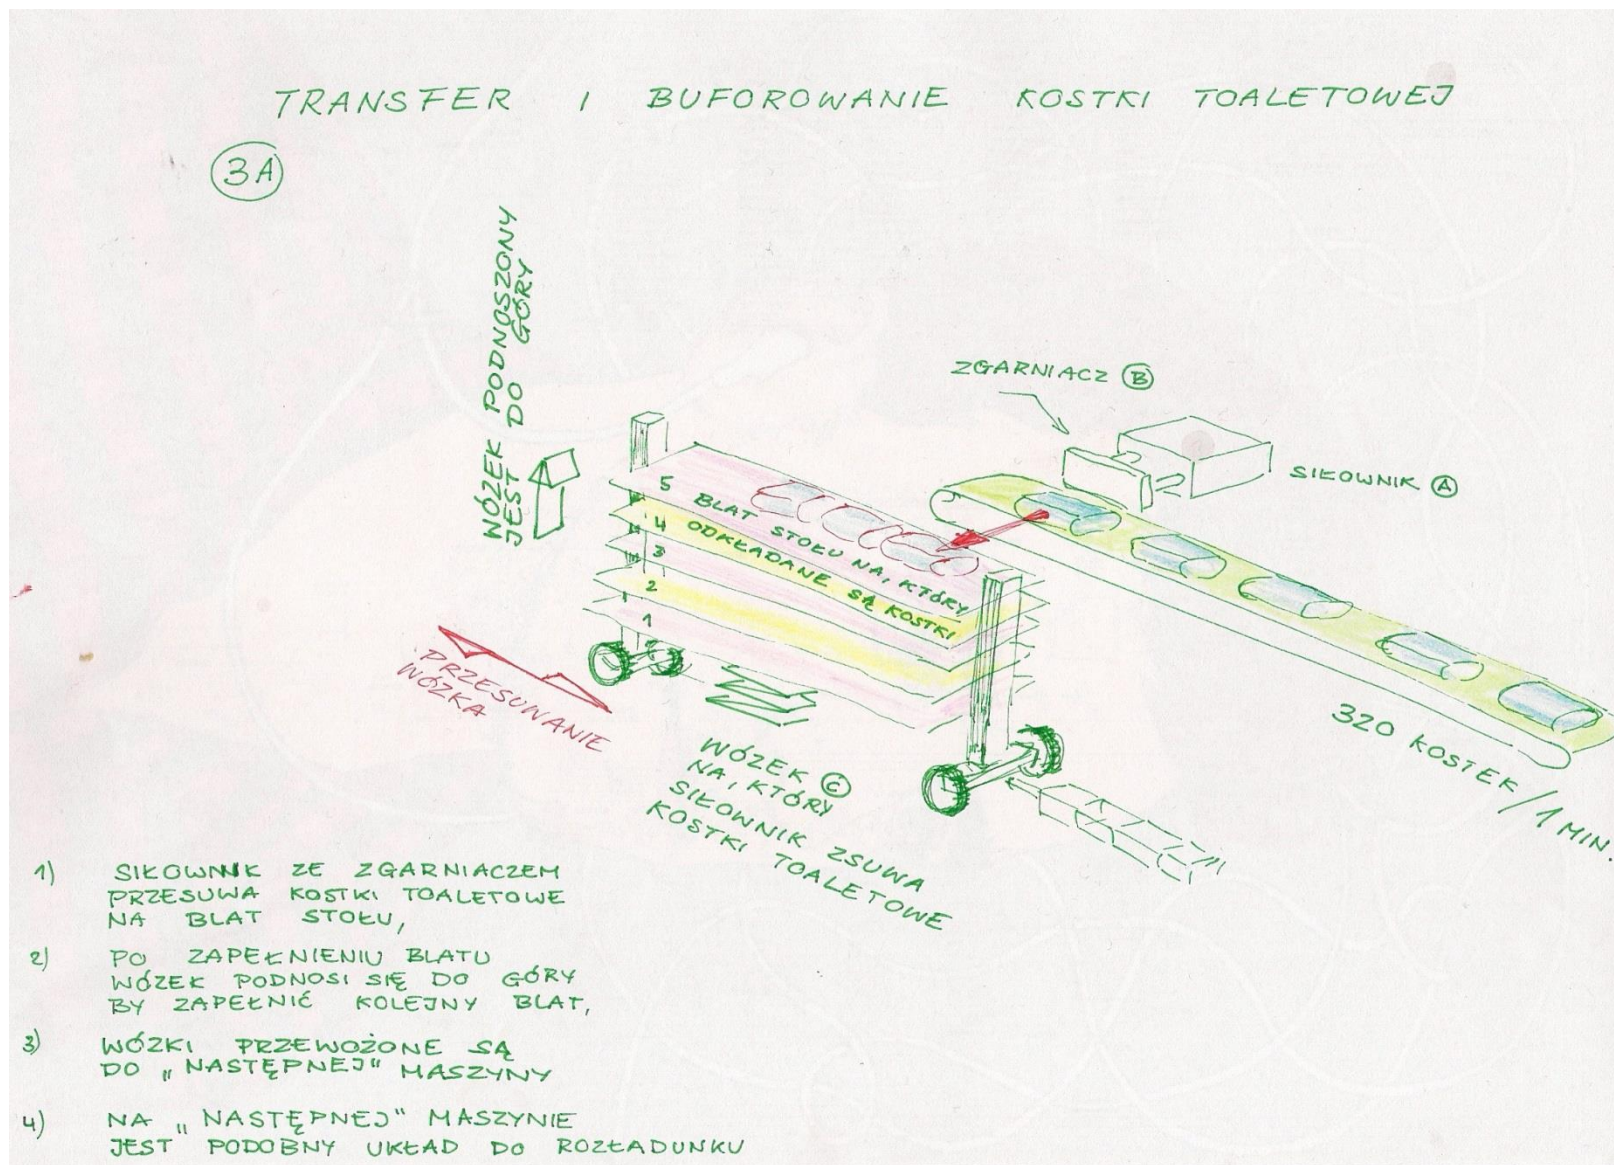 TRANSFER I BUFOROWANIE KOSTKI TOALETOWEJ
3A
WÓZEK PODNOSZONY
JEST DO GÓRY
ZGARNIACZ B
SIŁOWNIK A
5 BLAT STOŁU NA, KTÓRY
4 ODKŁADANE SĄ KOSTKI
3
2
1
PRZESUWANIE
WÓZKA
320 KOSTEK / 1 MIN.
WÓZEK C
NA, KTÓRY
SIŁOWNIK ZSUWA
KOSTKI TOALETOWE
1) SIŁOWNIK ZE ZGARNIACZEM
PRZESUWA KOSTKI TOALETOWE
NA BLAT STOŁU,
2) PO ZAPEŁNIENIU BLATU
WÓZEK PODNOSI SIĘ DO GÓRY
BY ZAPEŁNIĆ KOLEJNY BLAT,
3) WÓZKI PRZEWOŻONE SĄ
DO „NASTĘPNEJ" MASZYNY
4) NA „NASTĘPNEJ" MASZYNIE
JEST PODOBNY UKŁAD DO ROZŁADUNKU